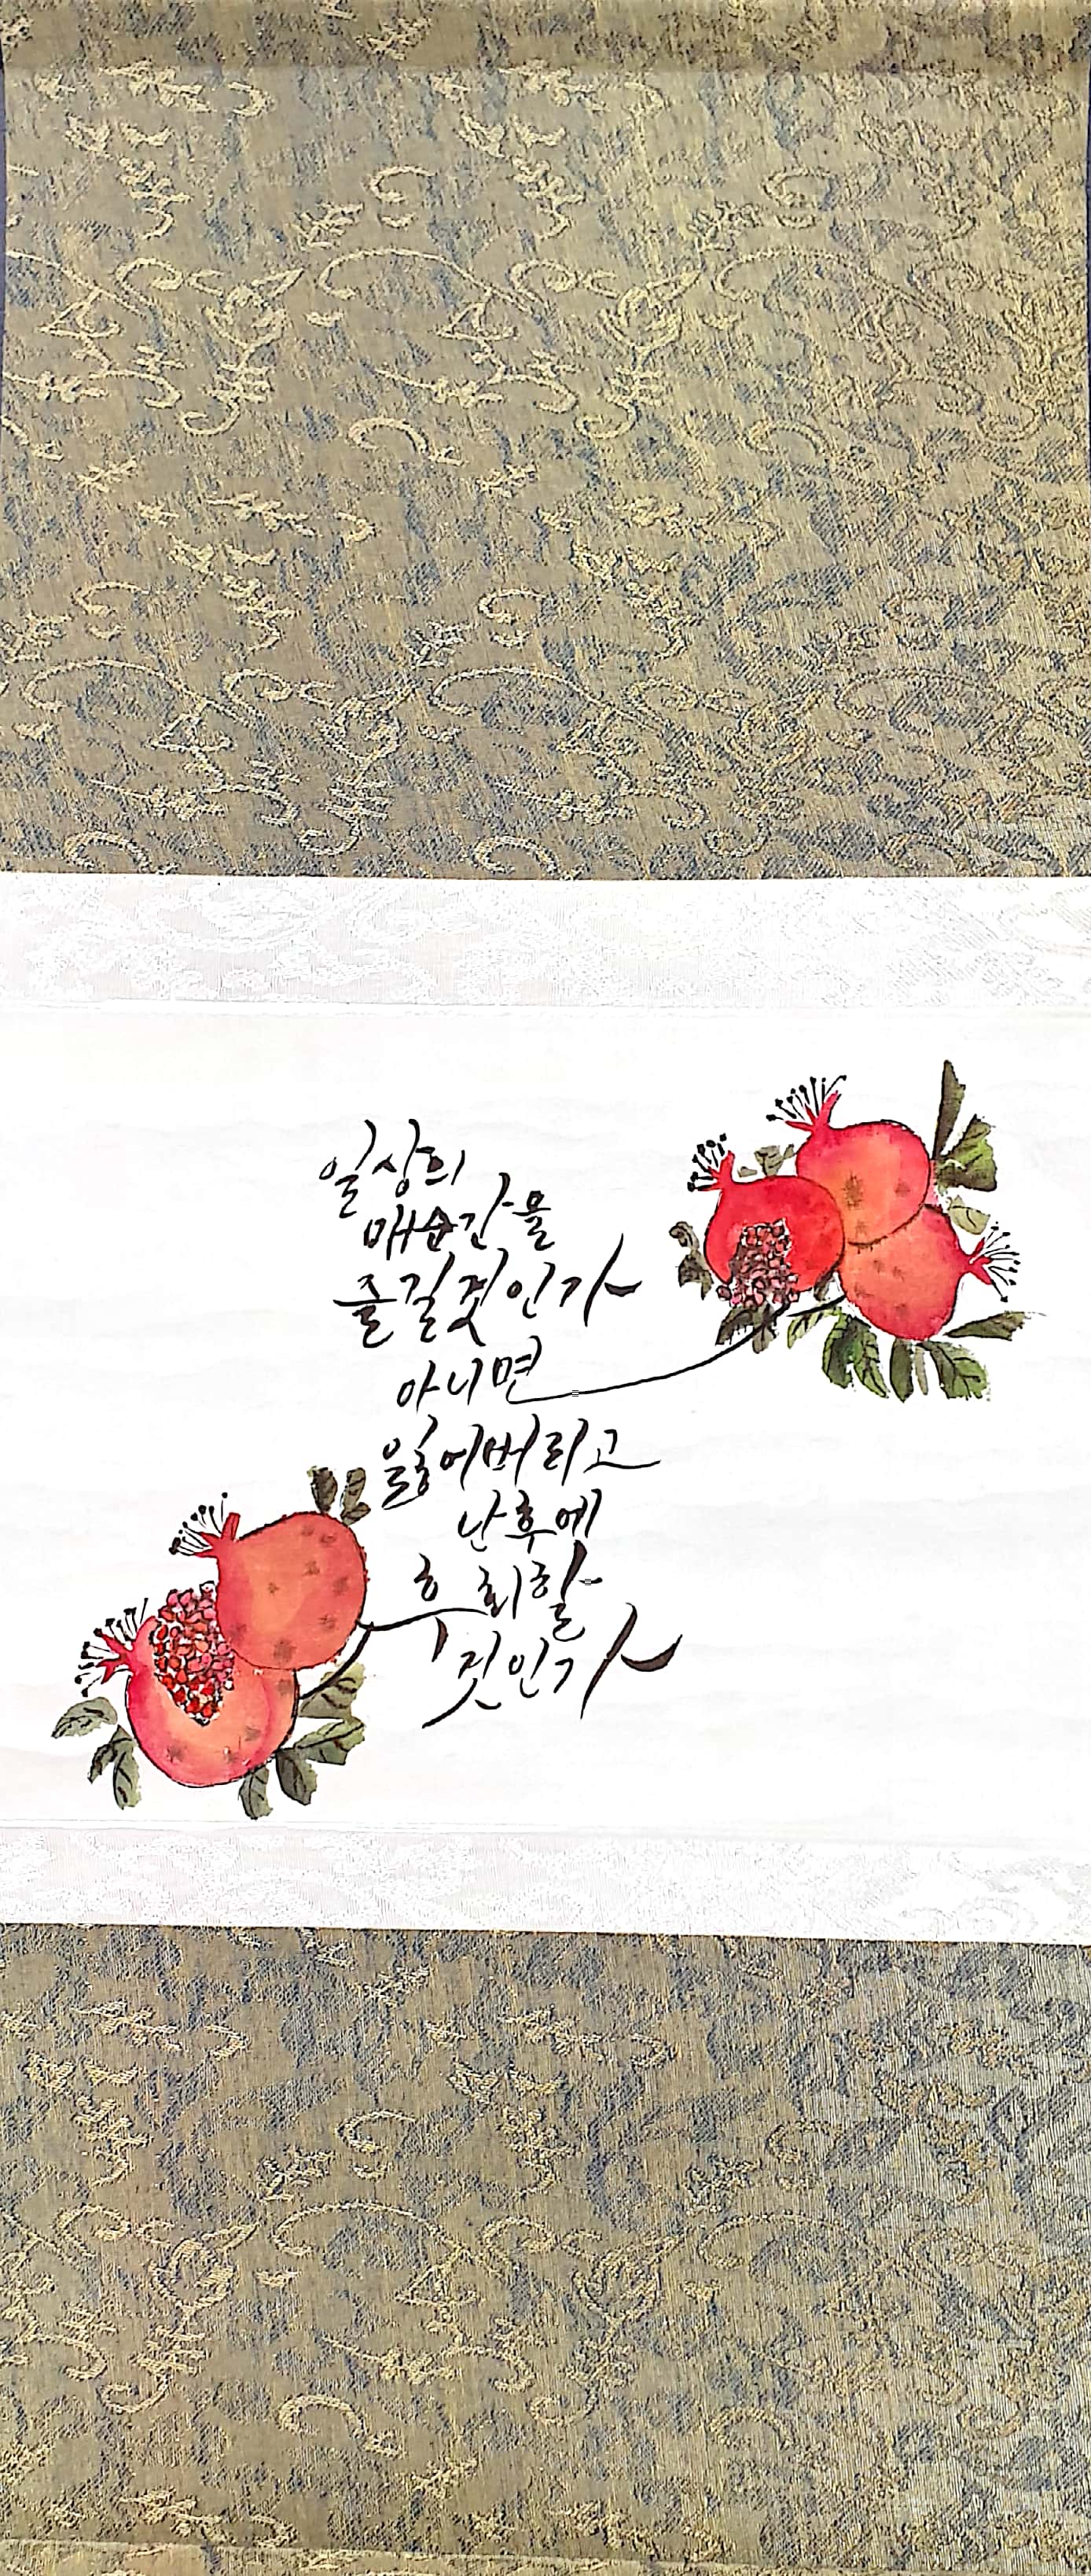 일상의
매순간을
즐길것인가
아니면
잃어버리고
난후에
후회할
것인가